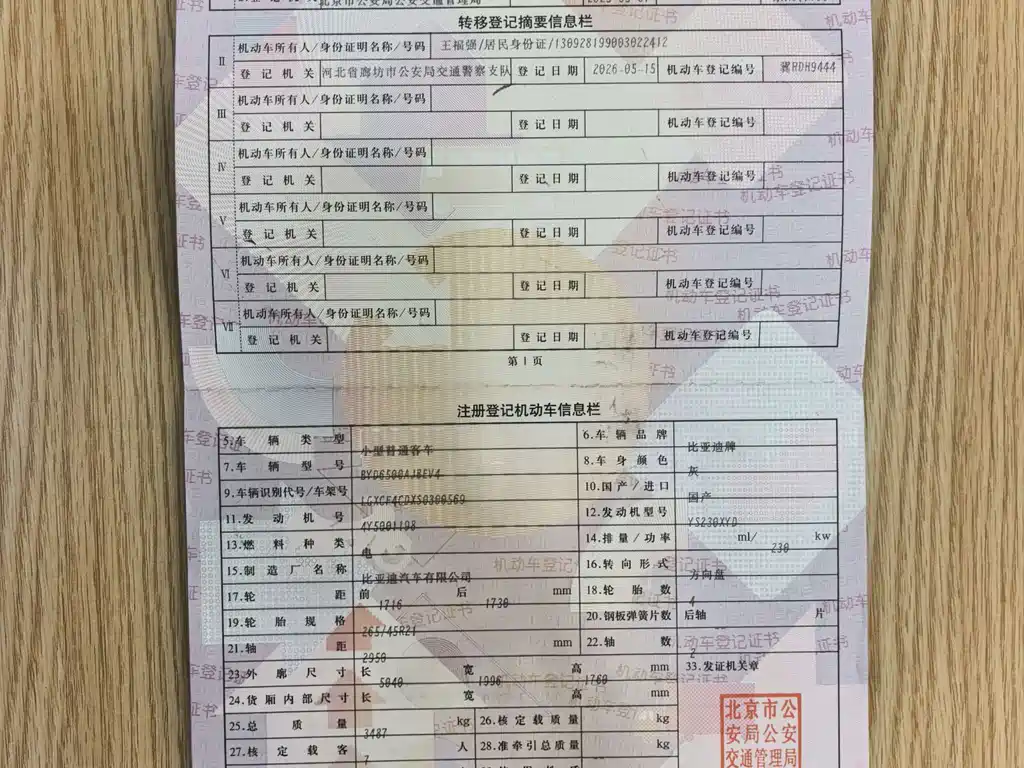 北京市公安局公安交通管理局
转移登记摘要信息栏
Ⅱ 机动车所有人/身份证明名称/号码 王福强/居民身份证/130928199003022412
登记机关 河北省廊坊市公安局交通警察支队 登记日期 2026-05-15 机动车登记编号 冀RDH9444
Ⅲ 机动车所有人/身份证明名称/号码
登记机关 登记日期 机动车登记编号
Ⅳ 机动车所有人/身份证明名称/号码
登记机关 登记日期 机动车登记编号
Ⅴ 机动车所有人/身份证明名称/号码
登记机关 登记日期 机动车登记编号
Ⅵ 机动车所有人/身份证明名称/号码
登记机关 登记日期 机动车登记编号
Ⅶ 机动车所有人/身份证明名称/号码
登记机关 登记日期 机动车登记编号
第1页
注册登记机动车信息栏
5.车辆类型 小型普通客车 6.车辆品牌 比亚迪牌
7.车辆型号 8.车身颜色 灰
9.车辆识别代号/车架号 10.国产/进口 国产
11.发动机号 4Y5001198 12.发动机型号 YS230XYD
13.燃料种类 电 14.排量/功率 ml/ 230 kw
15.制造厂名称 比亚迪汽车有限公司 16.转向形式 方向盘
17.轮距 前 1716 后 1730 mm 18.轮胎数 4
19.轮胎规格 265/45R21 20.钢板弹簧片数 后轴 片
21.轴距 2950 mm 22.轴数 2
23.外廓尺寸 长 5040 宽 1996 高 1760 mm 33.发证机关章
24.货厢内部尺寸 长 宽 高 mm
25.总质量 3487 kg 26.核定载质量 kg
27.核定载客 7 人 28.准牵引总质量 kg
北京市公
安局公安
交通管理局